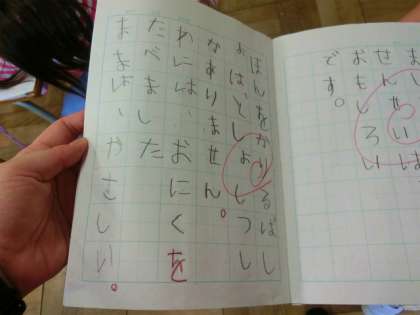 せんせいは
おもしろい
です。
ほんをかりるばし
ょは、としょしつし
かありません。
わには、おにくを
たべました
ままは、やさしい。